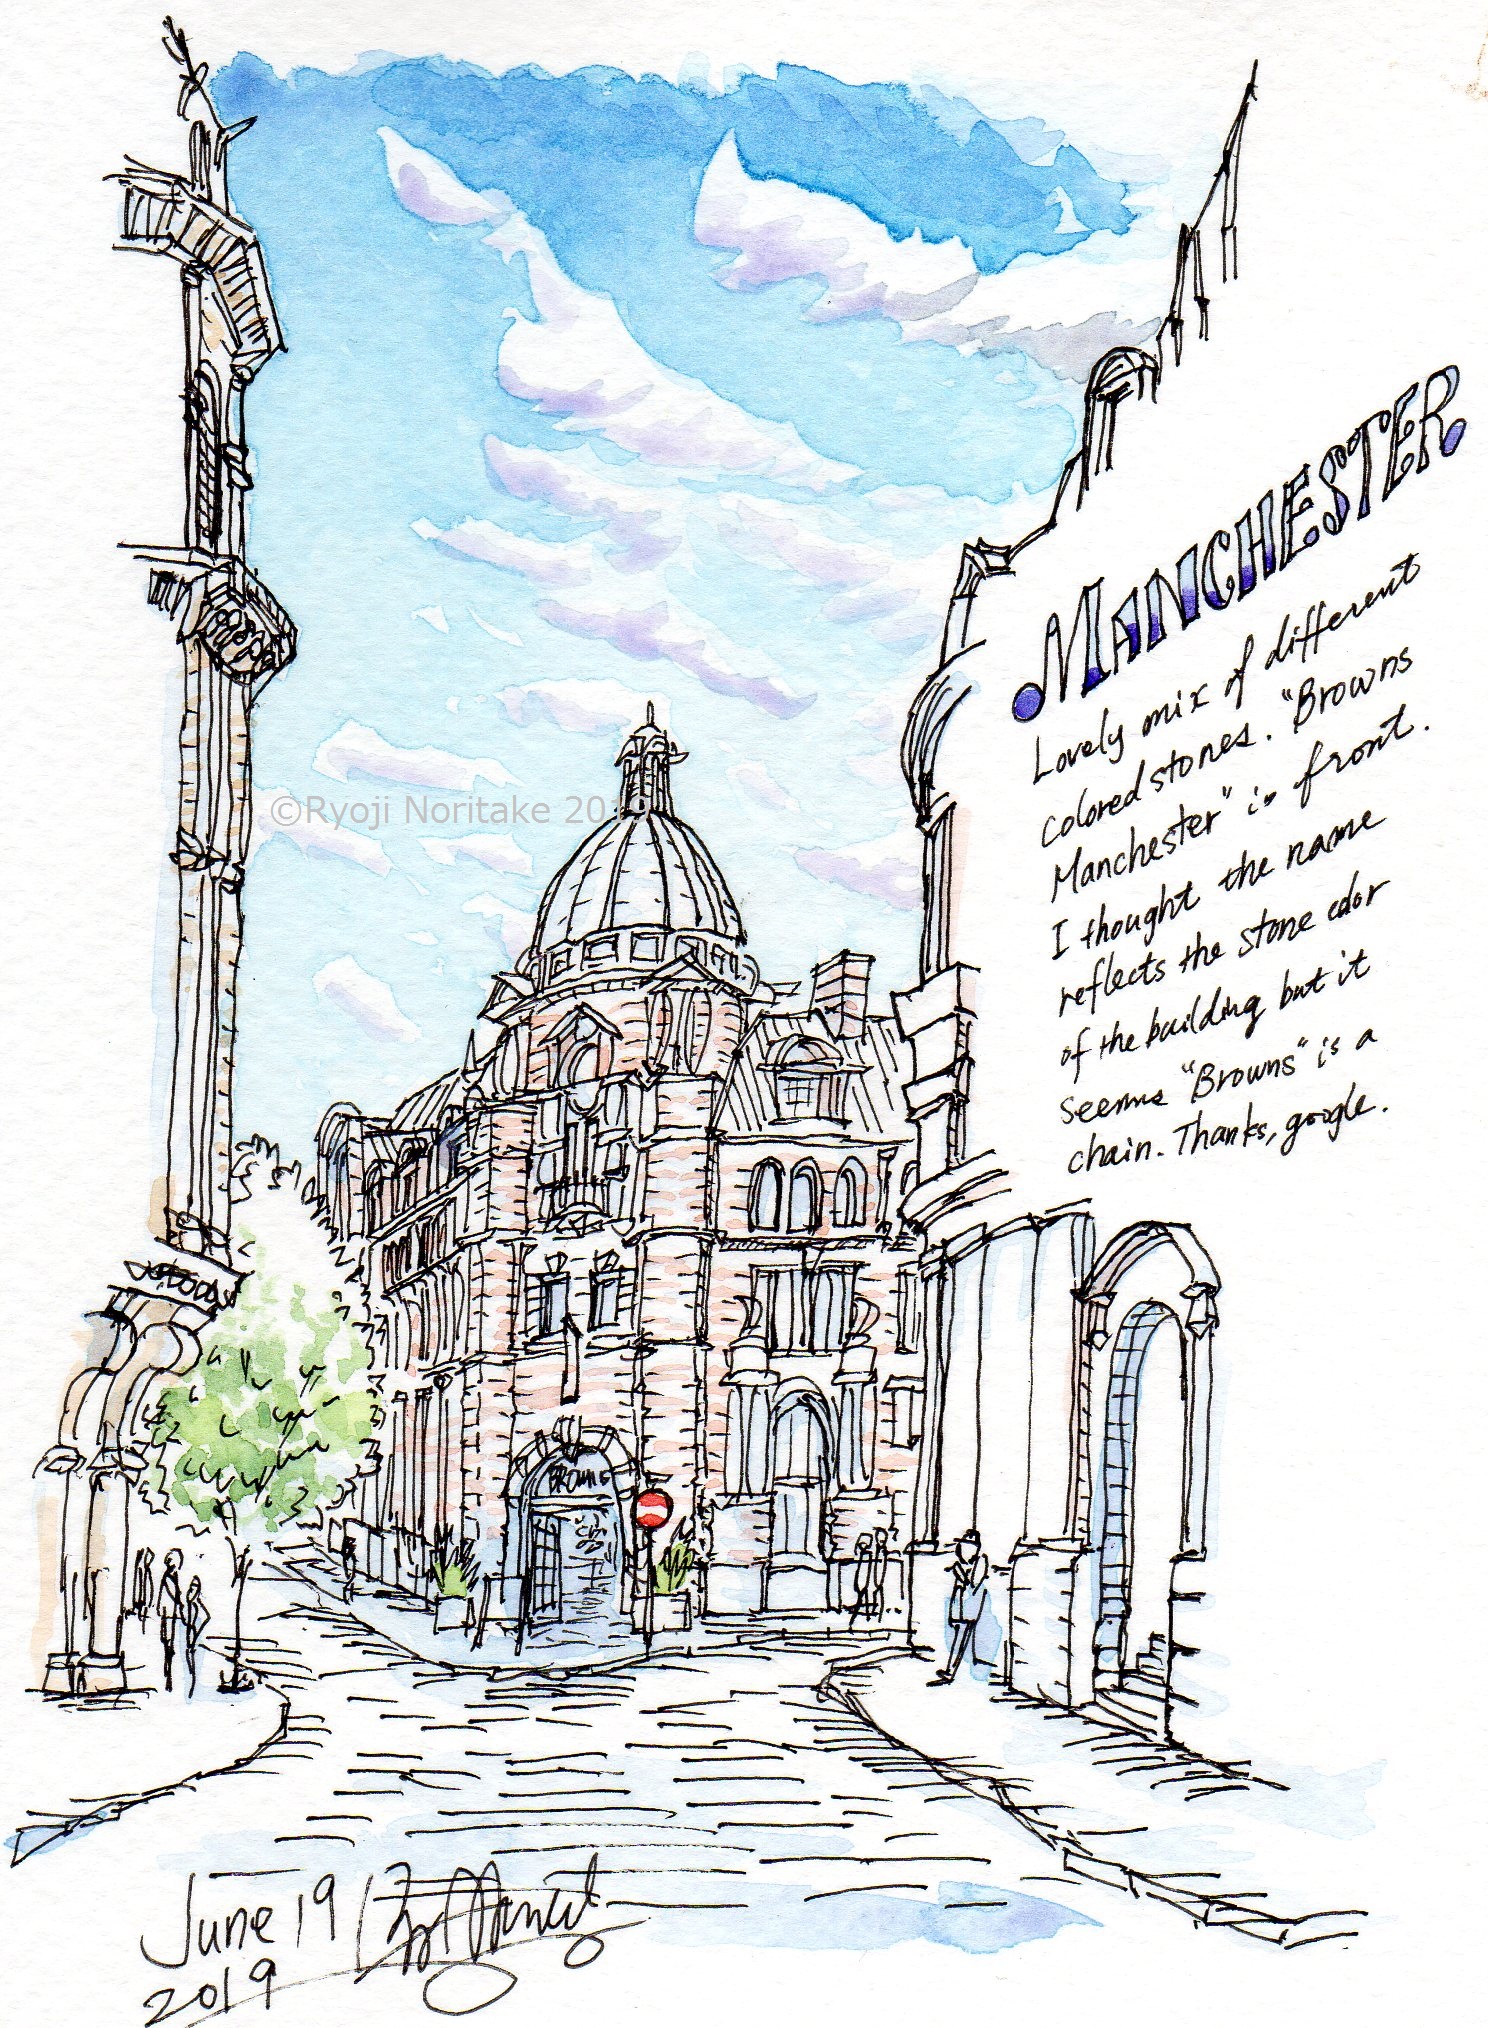 MANCHESTER
Lovely mix of different
colored stones. "Browns
Manchester" is front.
I thought the name
reflects the stone color
of the building but it
seems "Browns" is a
chain. Thanks, google.
©Ryoji Noritake 201
BROWNS
June 19
2019